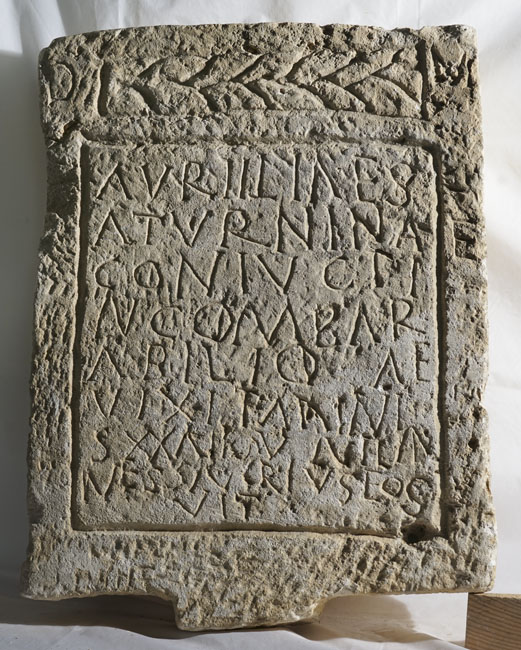 D M
AVRIILIAES
ATVRNINAE
CONIVGII
NCOMPAR
ABILIQVAE
VIXITANNI
SXX
NES RIVSEOS
VIT